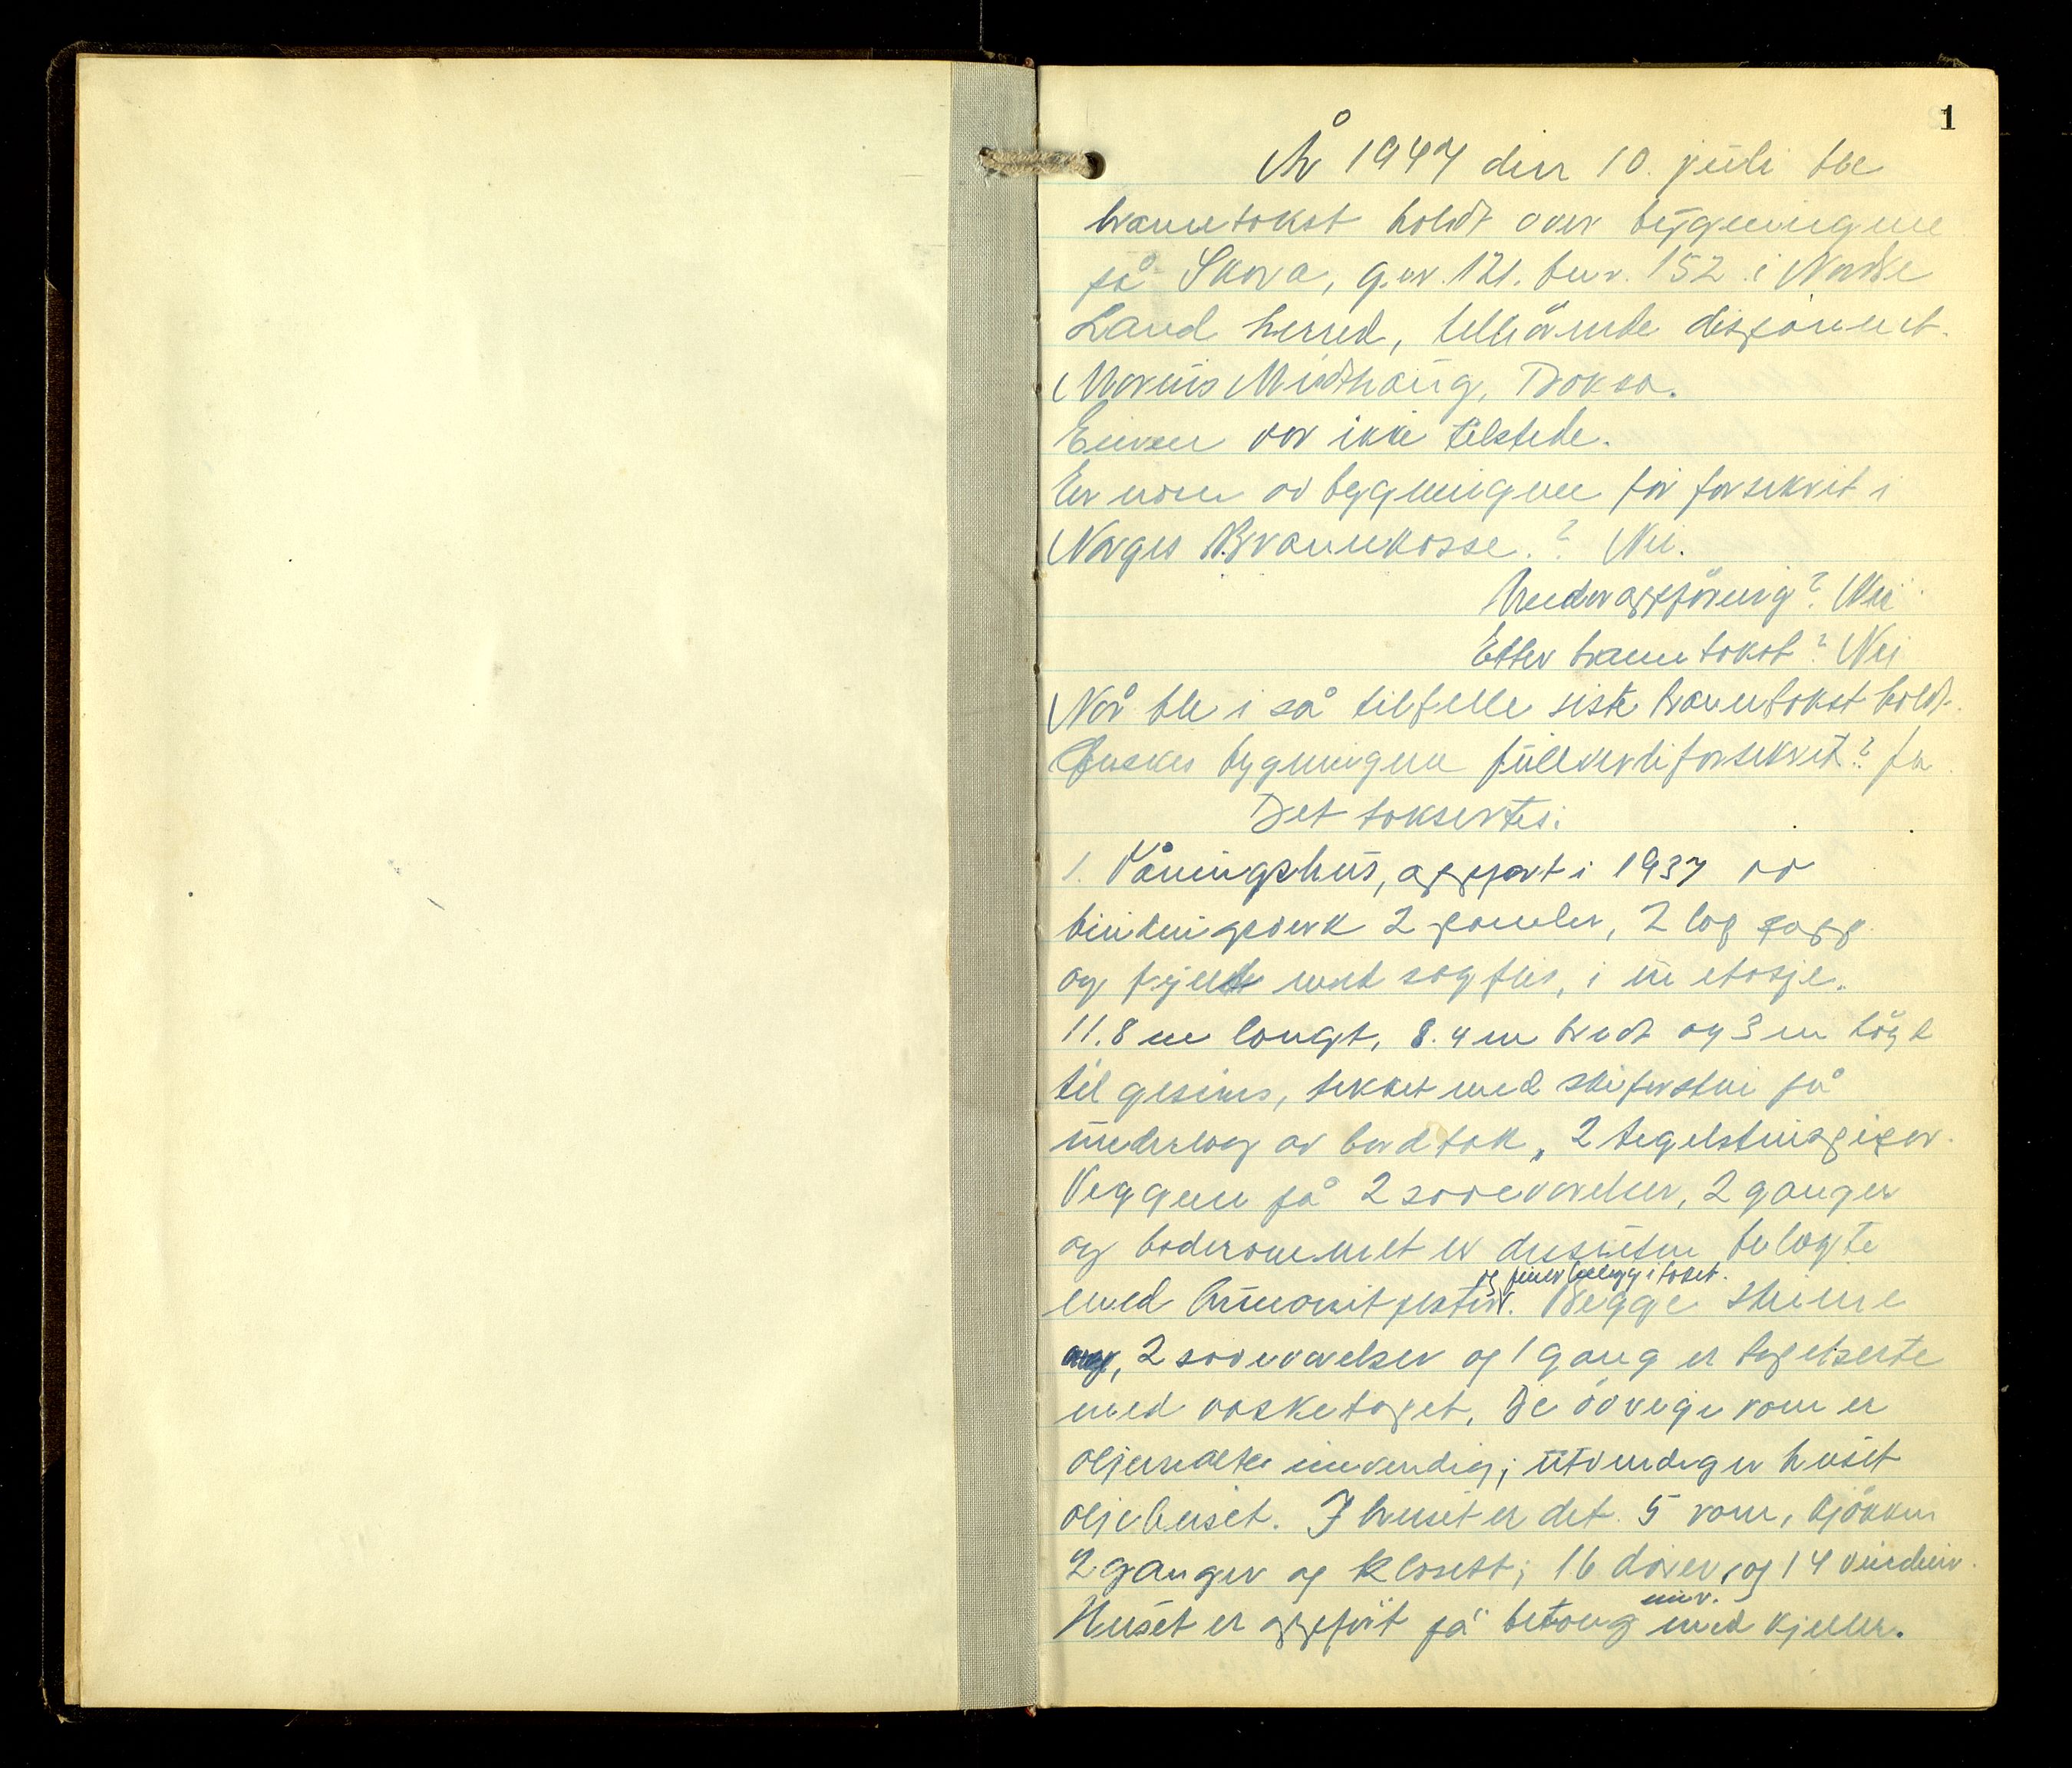 1
År 1947 den 10. juli ble
branntakst holdt over bygningene
på Skova, g.nr. 121. bnr. 152 i Nordre
Land herred, tilhörende disponent.
Marius Midthaug, Dokka.
Eieren var ikke tilstede.
Er noen av bygningene för forsikret i
Norges Brannkasse.? Nei.
Under oppföring? Nei
Etter branntakst? Nei
Når ble i så tilfelle siste branntakst holdt.
Önskes bygningene fullverdiforsikret? Ja
Det taksertes:
1. Våningshus, oppfört i 1937 av
bindingsverk 2 paneler, 2 lag papp
og fyllt med sagflis, i en etasje.
11.8 m langt, 8.4 m bredt og 3 m högt
til gesims, tekket med skiferstein på
underlag av bordtak, 2 tegelsteinspiper.
Veggene på 2 soveværelser, 2 ganger
og baderommet er dessuten belagte
og finerbelegg i taket.
med hunonitplater. Begge stuene
, 2 soveværelser og 1 gang er tapetserte
med vasketapet. De övrige rom er
oljemalte innvendig; utvendig er huset
oljebeiset. I huset er det 5 rom, kjökken
2 ganger og klosett; 16 dører, og 14 vinduer.
mur.
Huset er oppfört på betong med kjeller.